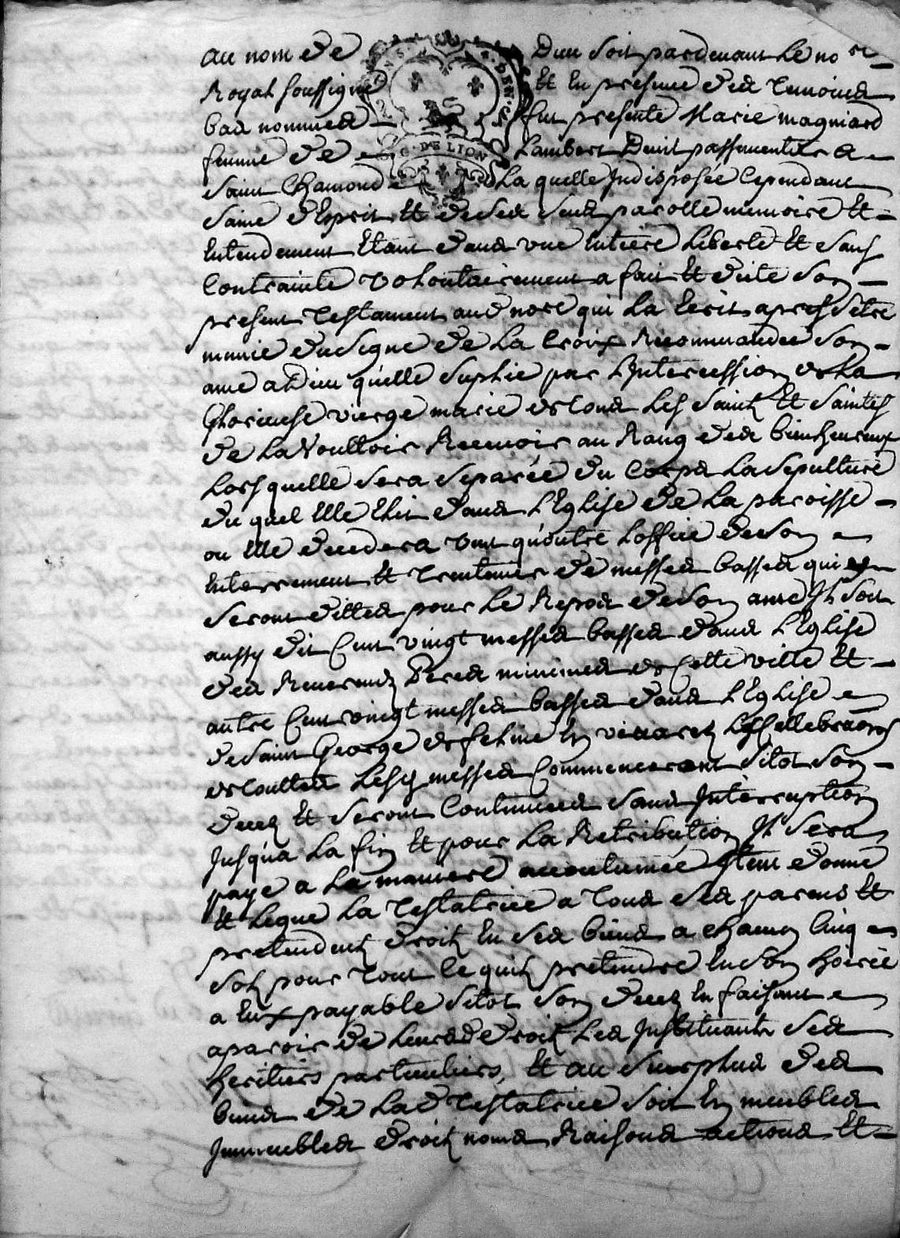 au nom de Dieu soit pardevant le no.re
Royal soussigné & en presence des temoins
bas nommés fut presente Marie magniard
femme de Lambert Denit passementier a
Saint Chamond La quelle Indisposée cependant
saine d'Esprit et de ses sens parolle memoire et
Entendement Etant dans une Entiere Liberté et sans
Contrainte volontairement a fait et dicté son
present testament aud nore qui La Ecrit apres s'etre
munie du signe de La Croix Recommandée son
ame a Dieu qu'elle suplie par L'Intercession de La
Glorieuse vierge marie de tous Les Saints et Saintes
de La Voulloir Recevoir au Rang des bienheureux
Lorsquelle sera separée du Corps La sepulture
du quel Elle Elit dans L'Eglise de La paroisse
ou Elle decedera veut qu'outre L'office de son
Enterrement et trentenier de messes basses qui
seront dittes pour Le Repos de son ame Il soit
aussy dit Cent vingt messes basses dans L'Eglise
des Reverends Peres minimes de Cette ville et
autre Cent vingt messes basses dans L'Eglise
de Saint George de en vivarez La Cellebraõn
de touttes Lesq messes Commenceront sitot son
decez et seront Continuées sans Interruption
Jusqu'a La fin et pour La Retribution Il sera
payé a La maniere accoutumée Item donne
et Legue La testatrice a tous ses parens et
pretendents droits en ses biens a chacun Cinq
sols pour tout ce quils pretendre en son hoirie
a Eux payable sitot son decez En faisant
aparoir de leursd droits Les Instituants ses
heritiers particuliers, et au surplus des
biens de Lad testatrice soit En meubles
Immeubles droits noms Raisons actions et
G. DE LION